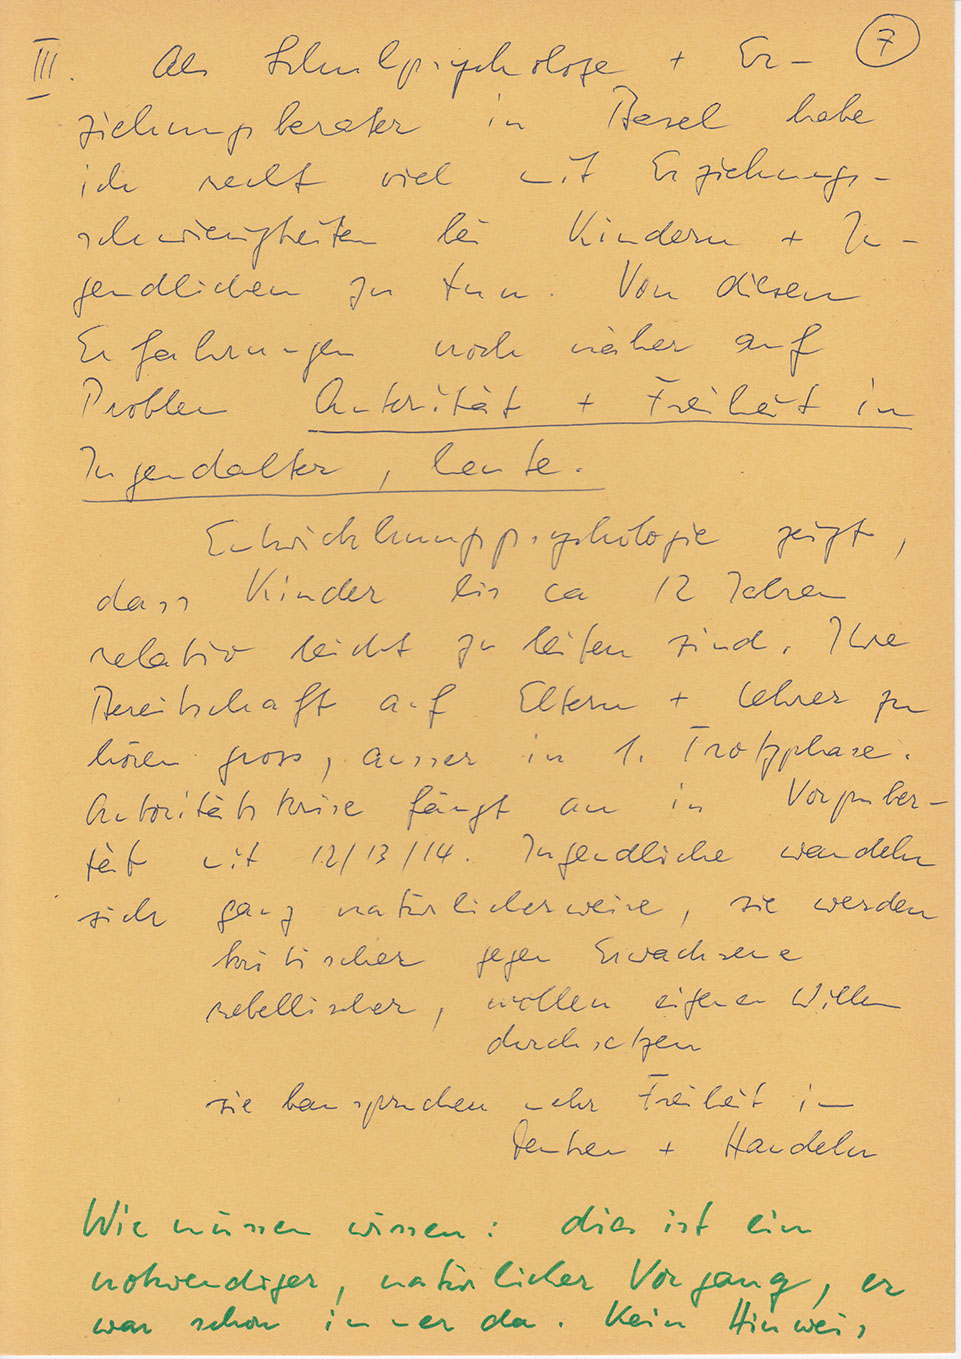 7
III. Als Schulpsychologe + Er-
ziehungsberater in Basel habe
ich recht viel mit Erziehungs-
schwierigkeiten bei Kindern + Ju-
gendlichen zu tun. Von diesen
Erfahrungen noch näher auf
Problem Autorität + Freiheit im
Jugendalter, heute.
Entwicklungspsychologie zeigt,
dass Kinder bis ca 12 Jahren
relativ leicht zu leiten sind. Ihre
Bereitschaft auf Eltern + Lehrer zu
hören gross, ausser in 1. Trotzphase.
Autoritätskrise fängt an in Vorpuber-
tät mit 12/13/14. Jugendliche wandeln
sich ganz natürlicherweise, sie werden
kritischer gegen Erwachsene
rebellischer, wollen eigenen Willen
durchsetzen
sie beanspruchen mehr Freiheit im
Denken + Handeln
Wir müssen wissen: dies ist ein
notwendiger, natürlicher Vorgang, er
war schon immer da. Kein Hinweis